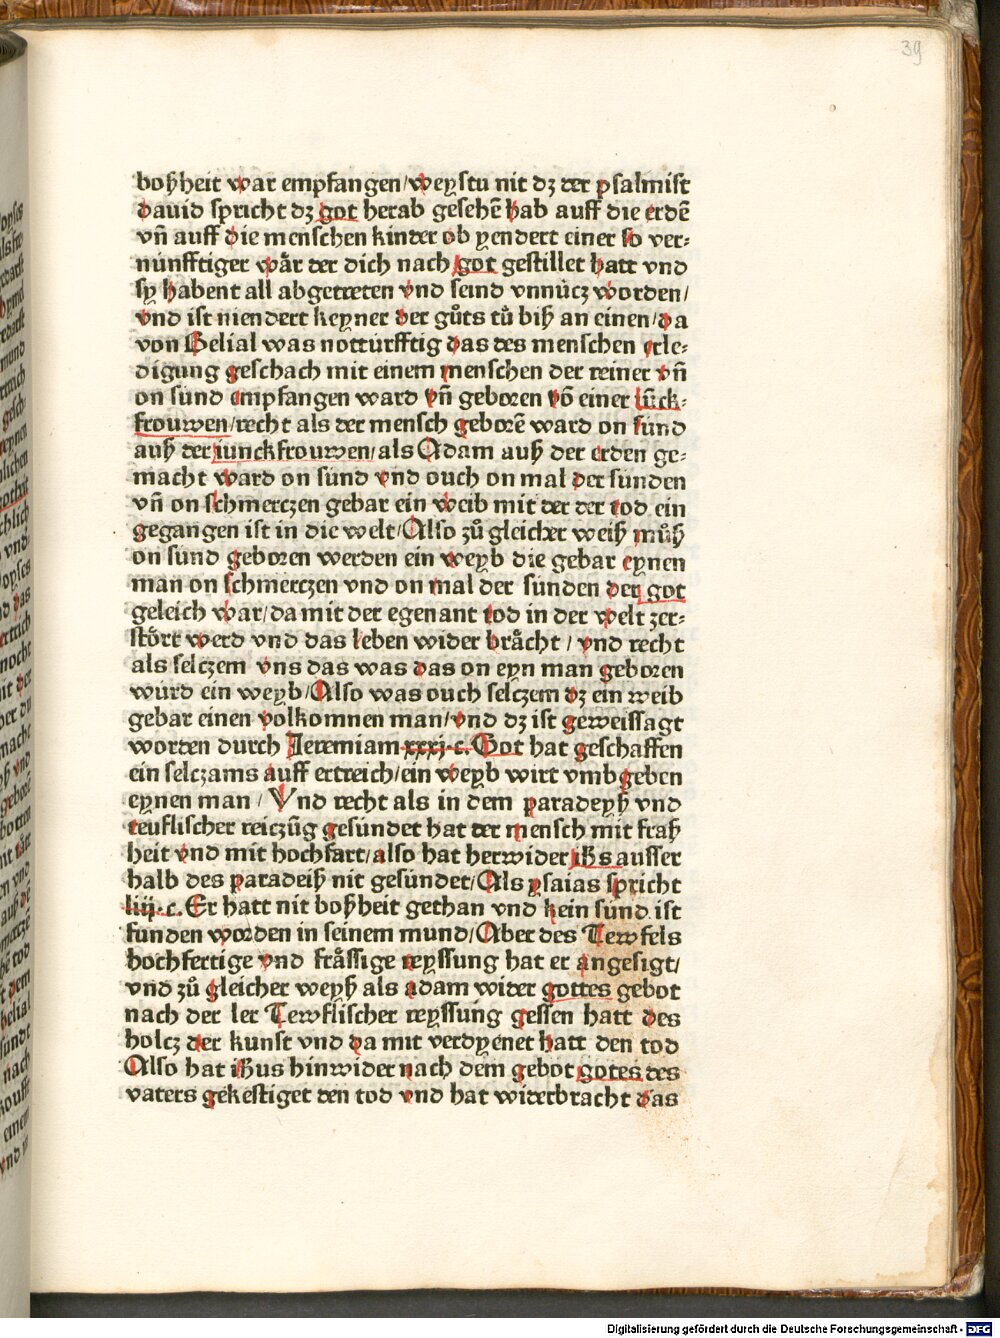 39
boßheit war empfangen/weystu nit dz der psalmist
dauid spricht dz got herab gesehē hab auff die erdē
vñ auff die menschen kinder ob yendert einer so ver⸗
nunfftiger wår der dich nach got gestillet hatt vnd
sy habent all abgetreten vnd seind vnnùcz worden/
vnd ist niendert keyner der gůts tů biß an einen/da
von Belial was notturfftig das des menschen erle⸗
digung geschach mit einem menschen der reiner vñ
on sund empfangen ward vñ geboren võ einer iūck⸗
frouwen/recht als der mensch geborē ward on sund
auß der iunckfrouwen/als Adam auß der erden ge⸗
macht ward on sund vnd ouch on mal der sunden
vñ on schmerczen gebar ein weib mit der der tod ein
gegangen ist in die welt/Also zů gleicher weiß můß
on sund geboren werden ein weyb die gebar eynen
man on schmerczen vnd on mal der sunden der got
geleich war/da mit der egenant tod in der welt zer⸗
stőrt werd vnd das leben wider bråcht/vnd recht
als selczem vns das was das on eyn man geboren
wurd ein weyb/Also was ouch selczem dz ein weib
gebar einen volkomnen man/vnd dz ist geweissagt
worden durch Jeremiam xxxj.c. Got hat geschaffen
ein selczams auff ertreich/ein weyb wirt vmbgeben
eynen man/Vnd recht als in dem paradeyß vnd
teuflischer reiczůg gesundet hat der mensch mit fraß
heit vnd mit hochfart/also hat herwider ihs ausser
halb des paradeiß nit gesundet/Als ysaias spricht
liij.c. Er hatt nit boßheit gethan vnd kein sund ist
funden worden in seinem mund/Aber des Tewfels
hochfertige vnd fråssige reyssung hat er angesigt/
vnd zů gleicher weyß als adam wider gottes gebot
nach der ler Tewflischer reyssung gessen hatt des
holcz der kunst vnd da mit verdyenet hatt den tod
Also hat ihus hinwider nach dem gebot gotes des
vaters gekestiget den tod vnd hat widerbracht das
Digitalisierung gefördert durch die Deutsche Forschungsgemeinschaft - DFG